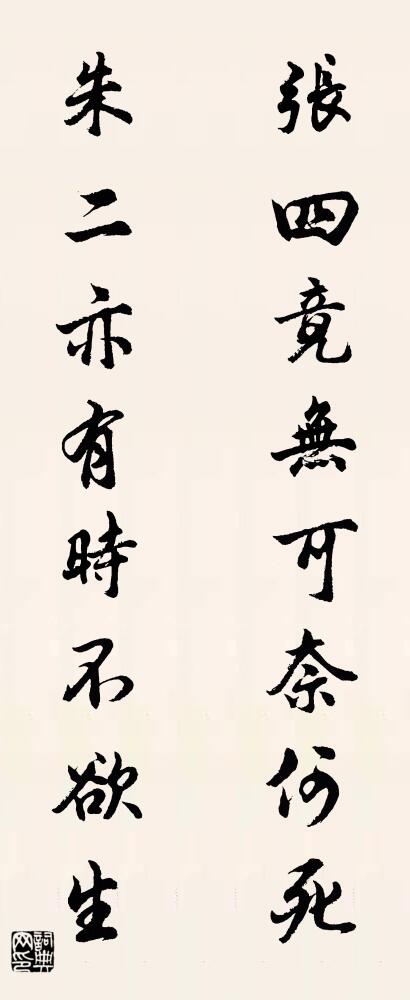 張四竟無可奈何死
朱二亦有時不欲生
詞典网印